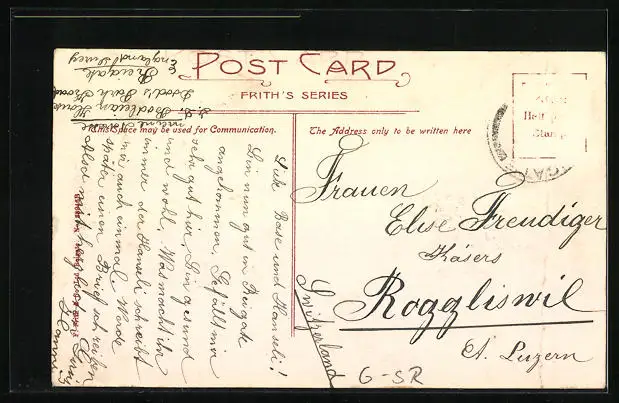 POST CARD
FRITH'S SERIES
This Space may be used for Communication.
The Address only to be written here
Half
Stamp
Liebe Base und Hanseli!
Bin nun gut in Reigate
angekommen, Gefällt mir
sehr gut hier, bin gesund
und wohl, Was macht ihr
immer der Hanseli schreibt
mir auch einmal Werde
später einen Brief schreiben
Also mit herz
meine Adresse
Bodleian House
Wood's Park Road
Reigate
England Surrey
Frauen
Elise Freudiger
Käsers
Roggliswil
Ct. Luzern
Switzerland
G-SR